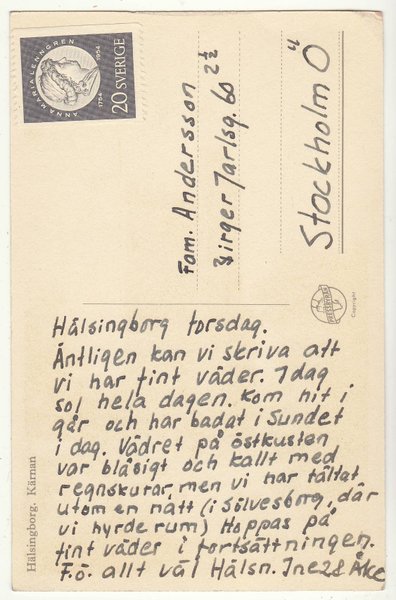 ANNA MARIA LENNGREN
1754 1954
20 SVERIGE
Fam. Andersson
Birger Jarlsg. 60 2½
Stockholm Ö
PRESSBYRÅN
Copyright
Hälsingborg. Kärnan
Hälsingborg torsdag.
Äntligen kan vi skriva att
vi har fint väder. I dag
sol hela dagen. Kom hit i
går och har badat i Sundet
i dag. Vädret på östkusten
var blåsigt och kallt med
regnskurar, men vi har tältat
utom en natt (i Sölvesborg, där
vi hyrde rum) Hoppas på
fint väder i fortsättningen.
F.ö. allt väl Hälsn. Inez & Åke